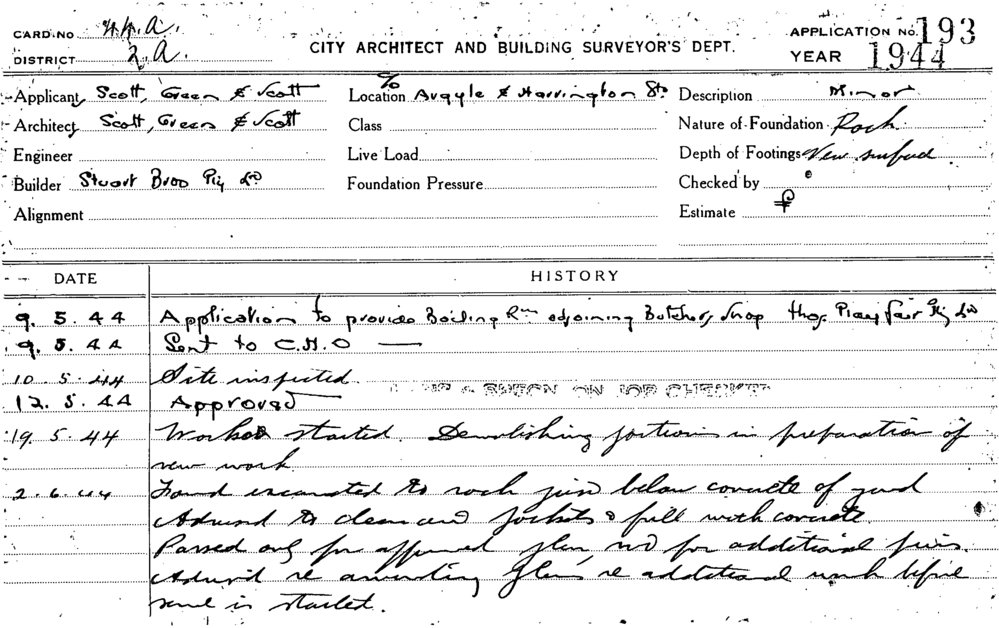 CARD NO 44.A.
DISTRICT 2.A.
CITY ARCHITECT AND BUILDING SURVEYOR'S DEPT.
APPLICATION No. 193
YEAR 1944
Applicant Scott, Green & Scott
Location c/o Argyle & Harrington Sts
Description Minor
Architect Scott, Green & Scott
Class
Nature of Foundation Rock
Engineer
Live Load
Depth of Footings New
Builder Stuart Bros Pty Ld
Foundation Pressure
Checked by
Alignment
Estimate £
DATE HISTORY
9. 5. 44 Application to provide Boiling Rm adjoining Butchers Shop Thos. Playfair Pty Ld
9. 5. 44 Sent to C.H.O —
10. 5. 44 Site inspected
ON JOB CHECKED
12. 5. 44 Approved
19. 5. 44 Work started. Demolishing portions in preparation of
new work
2. 6. 44 Found excavated to rock just below concrete of yard
Advised to clean out pockets & fill with concrete.
Passed only for approved plan, not for additional piers.
Advised re amending plans re additional work before
same is started.